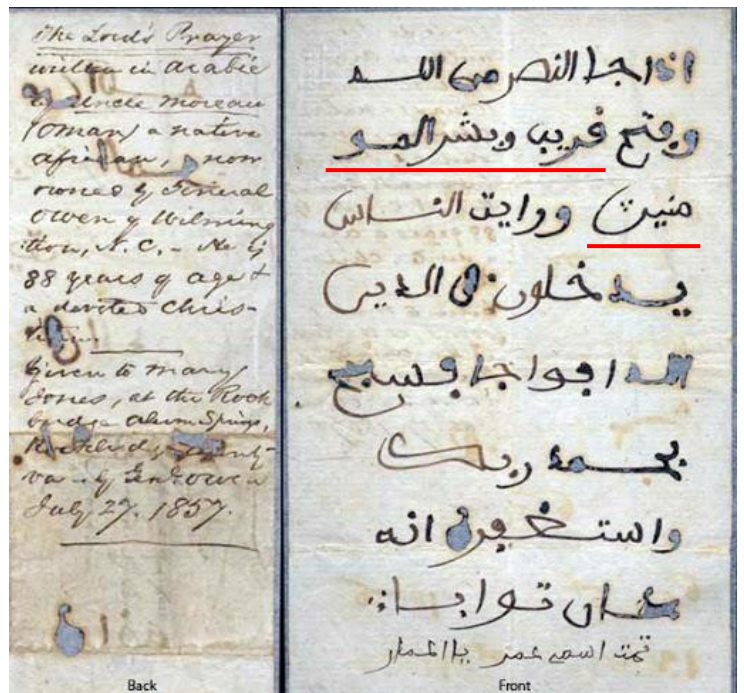 The Lord's Prayer
written in Arabic
by Uncle Moreau
(Omar) a native
african, now
owned by General
Owen of Wilming
ton, N.C. - He is
88 years of age &
a devoted Chris-
Given to Mary
Jones, at the Rock
bridge Alum Springs,
va. by Gen Owen
July 27. 1857.
Back
اذا جا النصر من الله
وفتح قريب وبشر المو
منين ورايت الناس
يدخلون فى الدين
الله افواجا فسبح
بحمد ربك
واستغفره انه
كان توابا
تمت اسمى عمر
Front